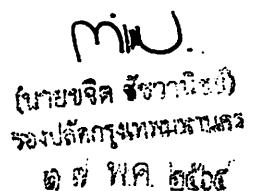 (นายขจิต ชัชวานิชย์)
รองปลัดกรุงเทพมหานคร
๑ ๗ พ.ค. ๒๕๖๔